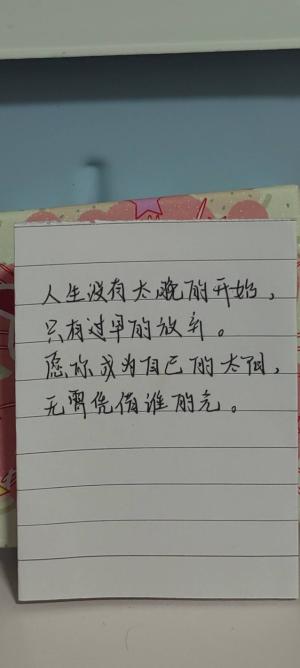 人生没有太晚的开始，
只有过早的放弃。
愿你成为自己的太阳，
无需凭借谁的光。